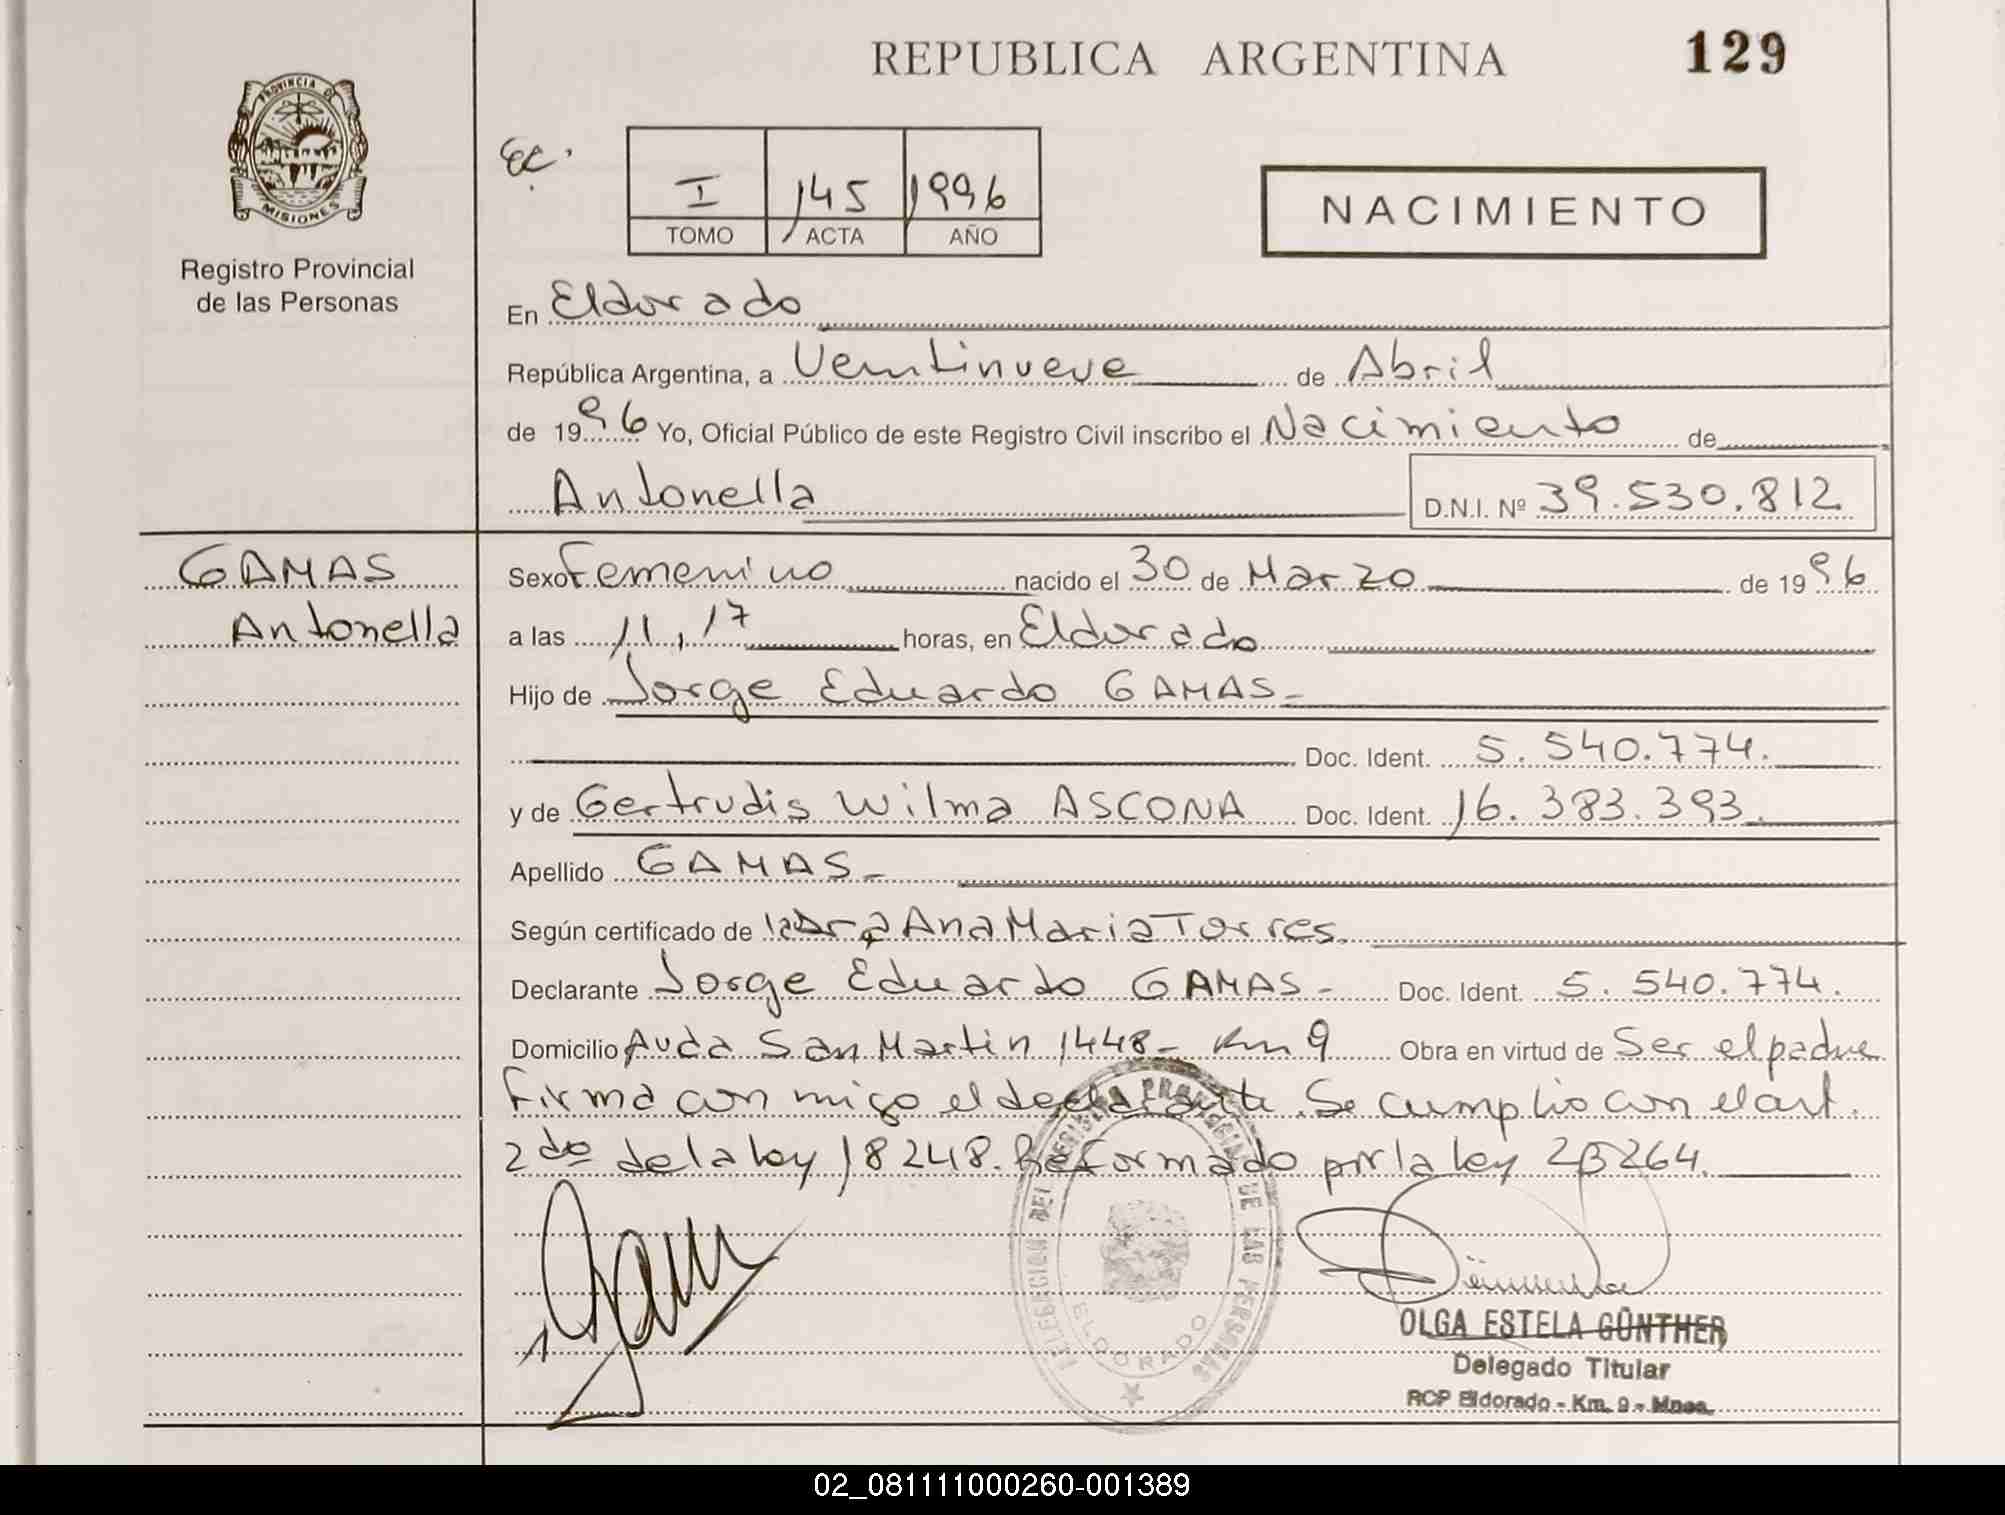 REPUBLICA ARGENTINA
129
PROVINCIA DE
MISIONES
Registro Provincial
de las Personas
I 145 1996
TOMO ACTA AÑO
NACIMIENTO
En Eldorado
República Argentina, a Veintinueve de Abril
de 1996 Yo, Oficial Público de este Registro Civil inscribo el Nacimiento de
Antonella D.N.I. Nº 39.530.812
GAMAS
Antonella
Sexo Femenino nacido el 30 de Marzo de 1996
a las 11,17 horas, en Eldorado
Hijo de Jorge Eduardo GAMAS-
Doc. Ident. 5.540.774.
y de Gertrudis Wilma ASCONA Doc. Ident. 16.383.393.
Apellido GAMAS-
Según certificado de la Dra Ana Maria Torres.
Declarante Jorge Eduardo GAMAS- Doc. Ident. 5.540.774.
Domicilio Avda San Martin 1448- Km 9 Obra en virtud de Ser el padre
Firma con migo el declarante. Se cumplio con el art.
2do de la ley 18248. Reformado por la ley 23264.
DELEGACION DEL REGISTRO PROVINCIAL DE LAS PERSONAS
ELDORADO
OLGA ESTELA GÜNTHER
Delegado Titular
RCP Eldorado - Km. 9 - Mnes.
02_081111000260-001389